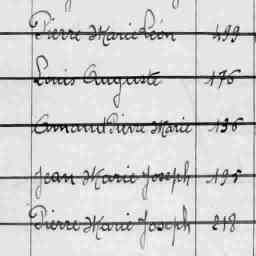 Pierre Marie Léon 499
Louis Auguste 176
Armand Pierre Marie 136
Jean Marie Joseph 195
Pierre Marie Joseph 218